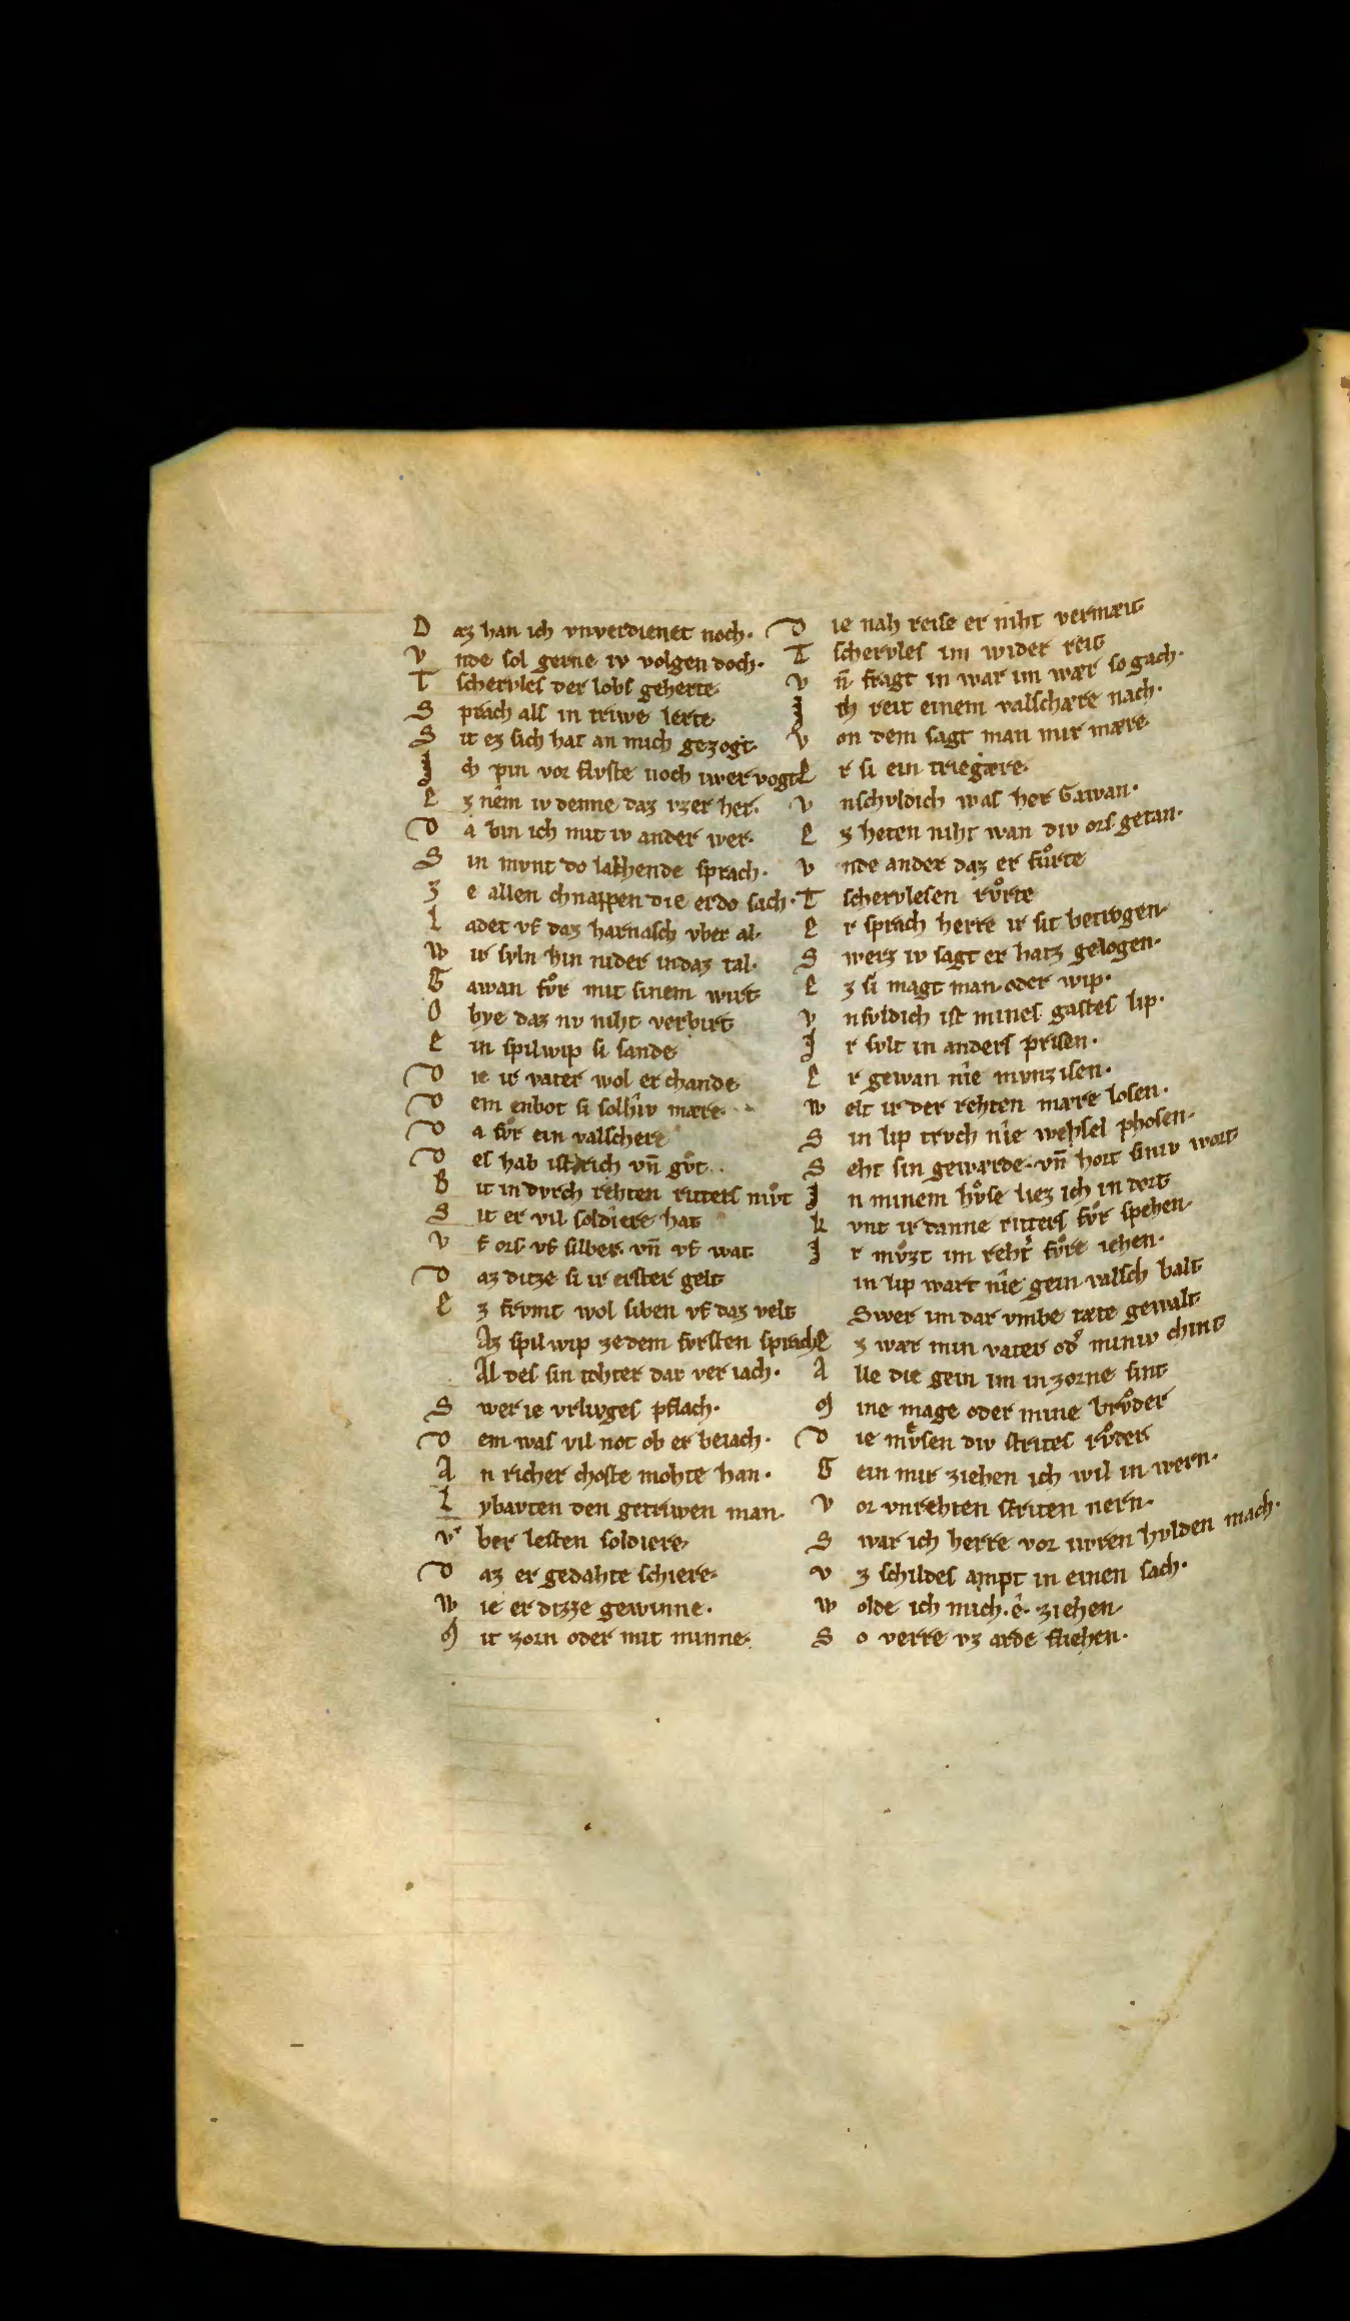 D az han ich vnverdienet noch·
V nde sol gerne iv volgen doch·
T schervles der lobs geherte·
S prach als in triwe lerte·
S it ez sich hat an mich gezogt·
J ch pin vor flvste noch iwer vogt
E z nem iv denne daz vzer her·
D a bin ich mit iv ander wer·
S in mvnt do lakhende sprach·
Z e allen chnappen die er do sach·
L adet vf daz harnasch vber al·
W ir svln hin nider in daz tal·
G awan fvͦr mit sinem wirt
O bye daz nv niht verbirt
E in spilwip si sande
D ie ir vater wol erchande
D em enbot si solhiv mære·
D a fvͦr ein valschere
D es hab ist rich vn̄ gvͦt·
B it in dvrch rehten ritters mvͦt
S it er vil soldiere hat
V f ors vf silber vn̄ vf wat
D az ditze si ir erster gelt
E z frvmt wol siben vf daz velt
Az spilwip ze dem fvrsten sprach
Al des sin tohter dar veriach·
S wer ie vrlivges pflach·
D em was vil not ob er beiach·
A n richer choste mohte han·
L ybavten den getriwen man·
V' ber lesten soldiere·
D az er gedahte schiere·
W ie er dizze gewinne·
M it zorn oder mit minne·
D ie nah reise er niht vermeit
T schervles im wider reit
V n̄ fragt in war im wær so gach·
J ch reit einem valschære nach·
V on dem sagt man mir mære
E r si ein triegære·
V nschvldich was her Gawan·
E z heten niht wan div ors getan·
V nde ander daz er fvͦrte
T schervlesen rvͦrte
E r sprach herre ir sit betrogen·
S werz iv sagt er hatz gelogen·
E z si magt man oder wip·
V nsvldich ist mines gastes lip·
J r svlt in anders prisen·
E r gewan nîe mvnzisen·
W elt ir der rehten mære losen·
S in lip trvch nîe wehsel phosen·
S eht sin gewærde vn̄ hort siniv wort
J n minem hvͦse liez ich in dort
K vnt ir danne ritters fvͦr spehen·
J r mvͦzt im reht' fvͦre iehen·
in lip wart nîe gein valsch balt
Swer im dar vmbe tæte gewalt
E z wær min vater od' miniv chint
A lle die gein im in zorne sint
M ine mage oder mine brvͦder
D ie mvͤsen div strites rvͦder
G ein mir ziehen ich wil in wern·
V or vnrehten striten nern·
S war ich herre vor iwren hvlden mach·
V z schildes ampt in einen sach·
W olde ich mich·ê·ziehen
S o verre vz arde fliehen·